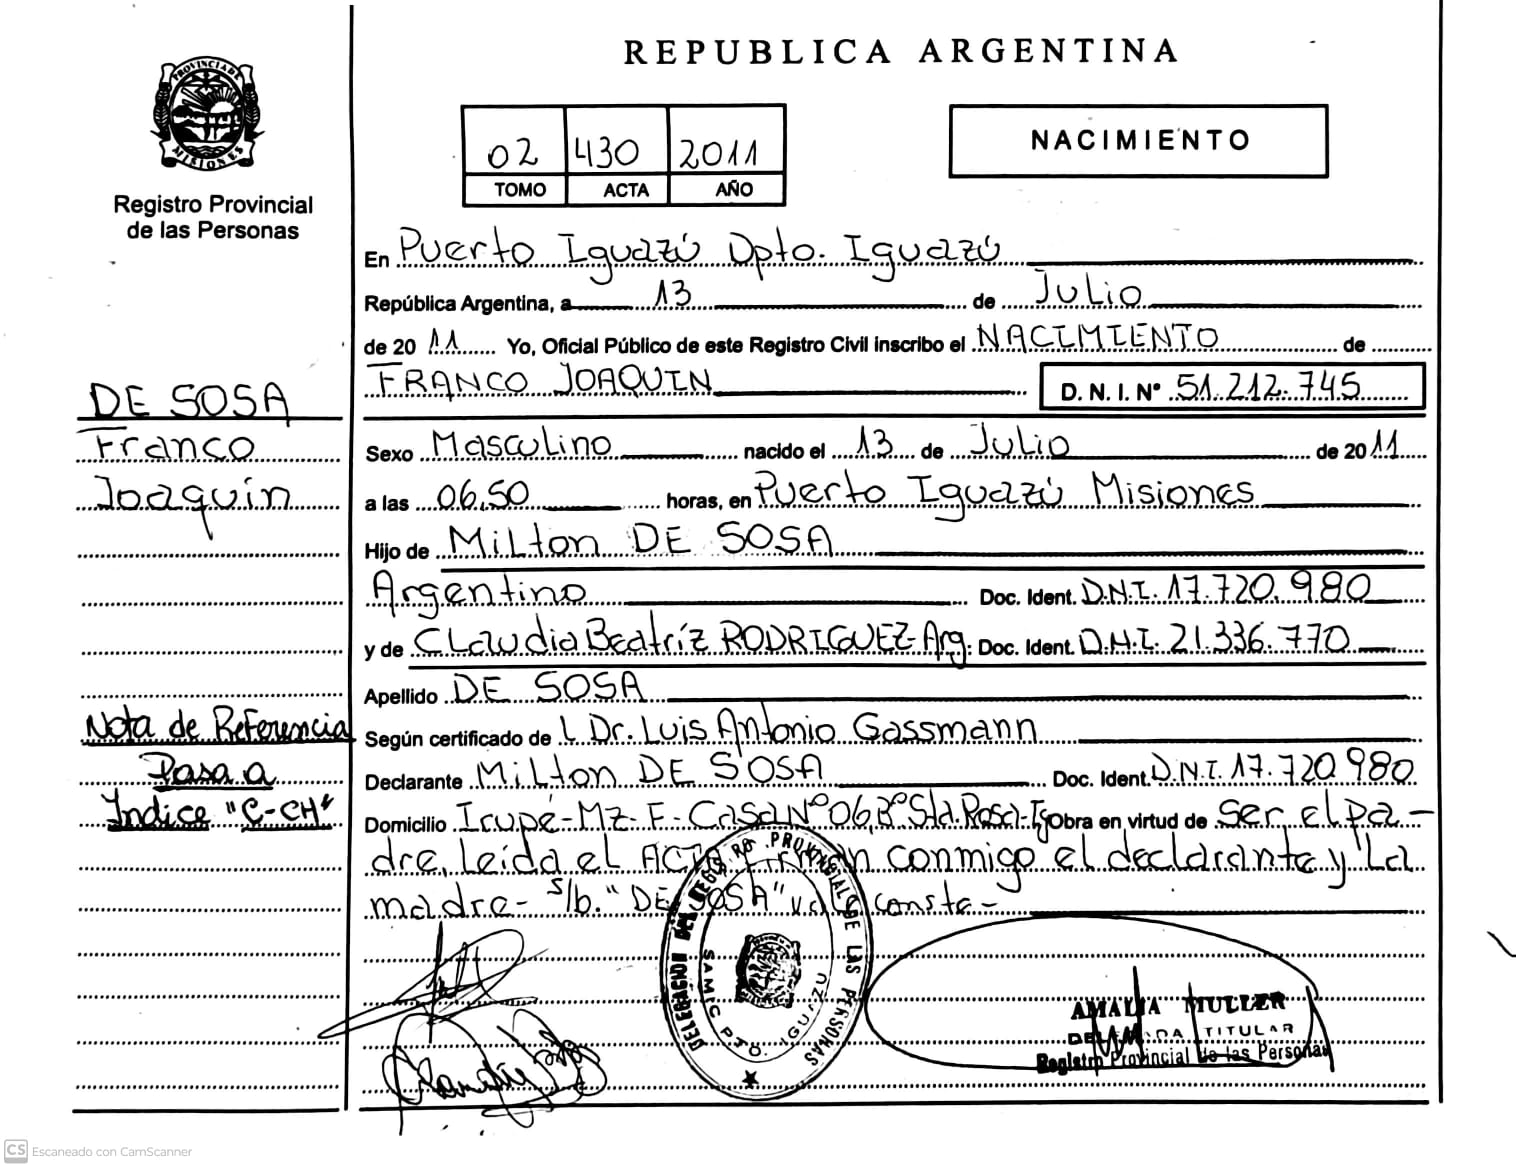 PROVINCIA DE
MISIONES
Registro Provincial
de las Personas
DE SOSA
Franco
Joaquín
Nota de Referencia
Pasa a
Índice "C-CH"
REPUBLICA ARGENTINA
02 430 2011
TOMO ACTA AÑO
NACIMIENTO
En Puerto Iguazú Dpto. Iguazú
República Argentina, a 13 de Julio
de 2011 Yo, Oficial Público de este Registro Civil inscribo el NACIMIENTO de
FRANCO JOAQUIN D. N. I. Nº 51.212.745
Sexo Masculino nacido el 13 de Julio de 2011
a las 06,50 horas, en Puerto Iguazú Misiones
Hijo de Milton DE SOSA
Argentino Doc. Ident. D.N.I. 17.720.980
y de Claudia Beatríz RODRIGUEZ-Arg. Doc. Ident. D.N.I. 21.336.770
Apellido DE SOSA
Según certificado de l Dr. Luis Antonio Gassmann
Declarante Milton DE SOSA Doc. Ident. D.N.I. 17.720.980
Domicilio Irupé-Mz-F-Casa Nº 06,Bº Sta.Rosa-Ig Obra en virtud de Ser el pa-
dre, Leída el ACTA conmigo el declarante y La
madre- s/b. "DE SOSA" vale conste-
DELEGACION DEL REGISTRO PROVINCIAL DE LAS PERSONAS
SAMIC PTO. IGUAZU
AMALIA MULLER
DELEGADA TITULAR
Registro Provincial de las Personas
CS Escaneado con CamScanner